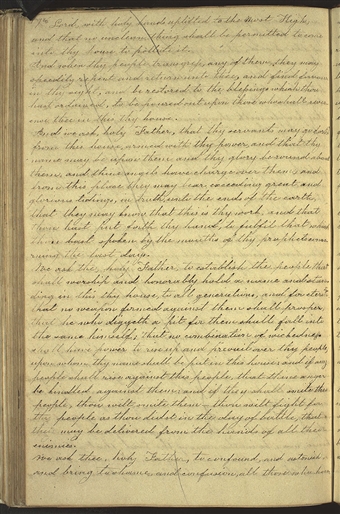 Lord, with holy hands uplifted to the Most High,
and that no unclean thing shall be permitted to come
into thy house to pollute it.
And when thy people transgress, any of them, they may
speedily repent and return unto thee, and find favour
in thy sight, and be restored to the blessings which thou
hast ordained, to be poured out upon those who shall rever
ence thee in this thy house.
And we ask, holy Father, that thy servants may go forth
from this house, armed with thy power, and that thy
name may be upon them and thy glory be round about
them, and thine angels have charge over them; and
from this place they may bear exceeding great and
glorious tidings, in truth, unto the ends of the earth,
that they may know that this is thy work, and that
thou hast put forth thy hand, to fulfil that which
thou hast spoken by the mouths of thy prophets concer
ning the last days.
We ask thee, holy Father, to establish the people that
shall worship and honorably hold a name and stan
ding in this thy house, to all generations, and for eternity
that no weapon formed against them shall prosper;
that he who diggeth a pit for them shall fall into
the same himself; that no combination of wickedness
shall have power to rise up and prevail over thy people,
upon whom thy name shall be put in this house: and if any
people shall rise against this people, that thine anger
be kindled against them: and if they shall smite this
people, thou wilt smite them - thou wilt fight for
thy people as thou didst in the day of battle, that
they may be delivered from the hands of all their
enemies.
We ask thee, holy Father, to confound, and astonish
and bring to shame, and confusion, all those who have